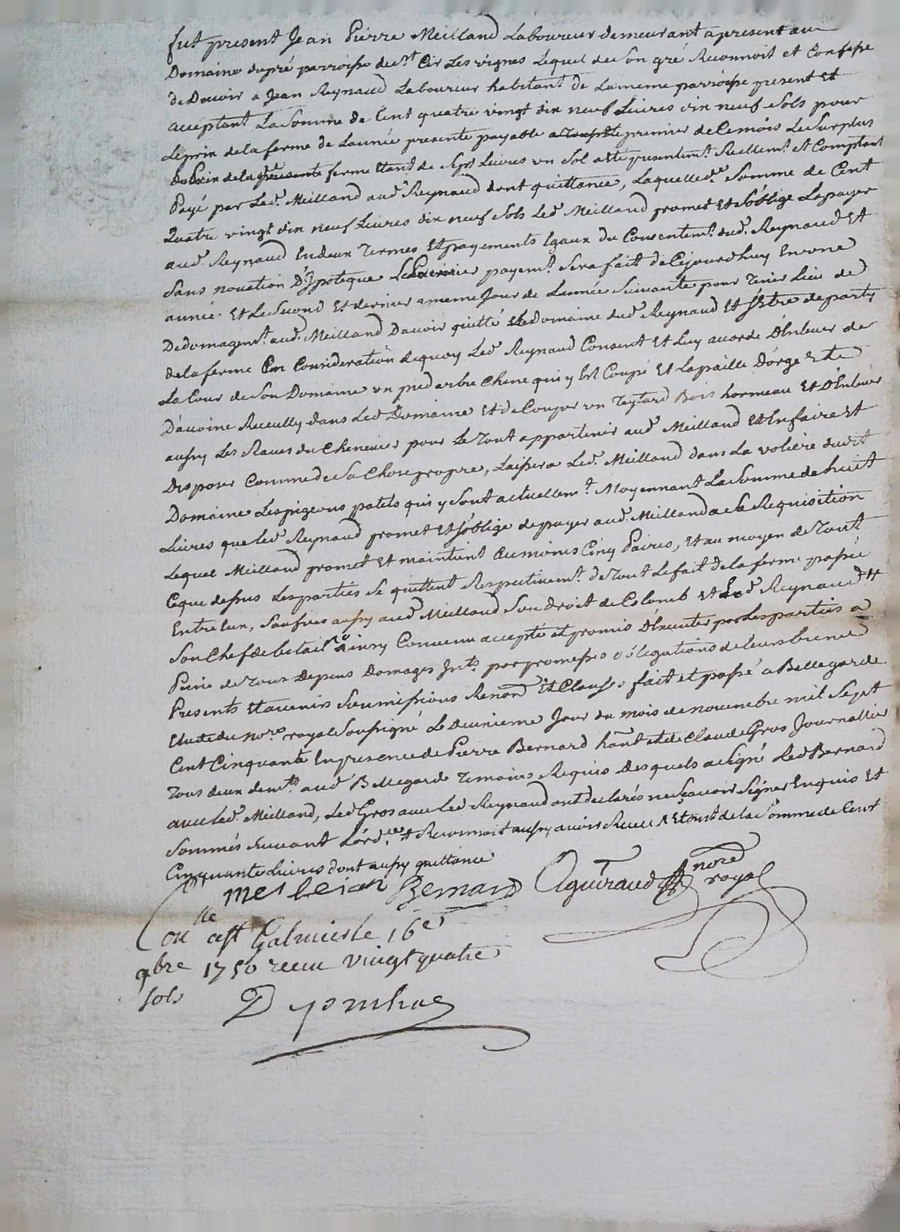 fut present Jean Pierre Meilland Laboureur demeurant apresent au
Domaine dupré parroisse de st Cir Les vignes Lequel de son gré Reconnoit et Confesse
de Devoir a Jean Reynaud Laboureur habitant de La meme parroisse present et
acceptant La Somme de Cent quatre vingt dix neuf Livres dix neuf Sols pour
Leprix de la ferme de Lannée presente payable a premier de Cemois Le Surplus
du prix de la presente ferme Etant de Sept Livres un Sol a été presentemt Reellemt Et Comptant
Payé par Led. Meilland aud. Reynaud dont quittance, Laquelle de. Somme de Cent
Quatre vingt dix neuf Livres dix neuf Sols Led. Meilland promet Et s'oblige La payer
aud. Reynaud En deux Termes Et payements Egaux du Consentemt dud. Reynaud Et
Sans novation D'Ypoteque Le premier payemt Sera fait de Cejourdhuy En une
année Et Le Second Et dernier a meme Jour de Lannée Suivante pour Tenir Lieu de
Dedomagemt aud. Meilland Davoir quitté Le domaine dud. Reynaud Et s'Etre departy
de la ferme En Consideration dequoy Led. Reynaud Consent Et Luy accorde D'Enlever de
La Cour de Son Domaine un pied arbre Chene qui y Est Coupé Et La paille D'orge Et de
D'avoine Recueilly dans Led. Domaine Et de Couper un Teytard Bois hormeau Et D'Enlever
aussy Les Raves du Chenevier pour Le Tout appartenir aud. Meilland Et En faire Et
Disposer Comme de Sa Chose propre, Laissera Led. Meilland dans La volière dudit
Domaine Les pigeons patels qui y Sont actuellemt. Moyennant La Somme de huit
Livres que Led. Reynaud promet Et s'oblige de payer aud. Meilland a Sa Requisition
Lequel Meilland promet Et maintient Au moins Cinq Paires, Et au moyen de Tout
Ceque dessus Les parties Se quittent Respectivemt. de Tout Le fait de la ferme passée
Entre Eux, Sauf res aussy aud. Meilland Son droit de Colomb Et Led. Reynaud
Son Chef de betail Ainsy Convenu accepté et promis D'Executer par Les parties a
Peine de Tous Depens Domages Intts. par promesses obligations de Leurs biens
Presents Et avenir Soumissions Renond. Et Clauses. fait et passé a Bellegarde
Etude du nore. royal Soussigné Le deuxieme Jour du mois de novembre mil Sept
Cent Cinquante En presence de Pierre Bernard hant. et de Claude Gros Journallier
Tous deux demts. aud. Bellegarde Temoins Requis Desquels a Signé Led. Bernard
avec Led. Meilland, Led. Gros avec Led. Reynaud ont declarés ne Scavoir Signer Enquis Et
Sommés Suivant L'ordce. Reconnoit aussy avoir Receu de la Somme de Cent
Cinquante Livres dont aussy quittance
Bernard Aguiraud nore royal
à st Galmier le 16e
9bre 1750 receu vingt quatre
sols